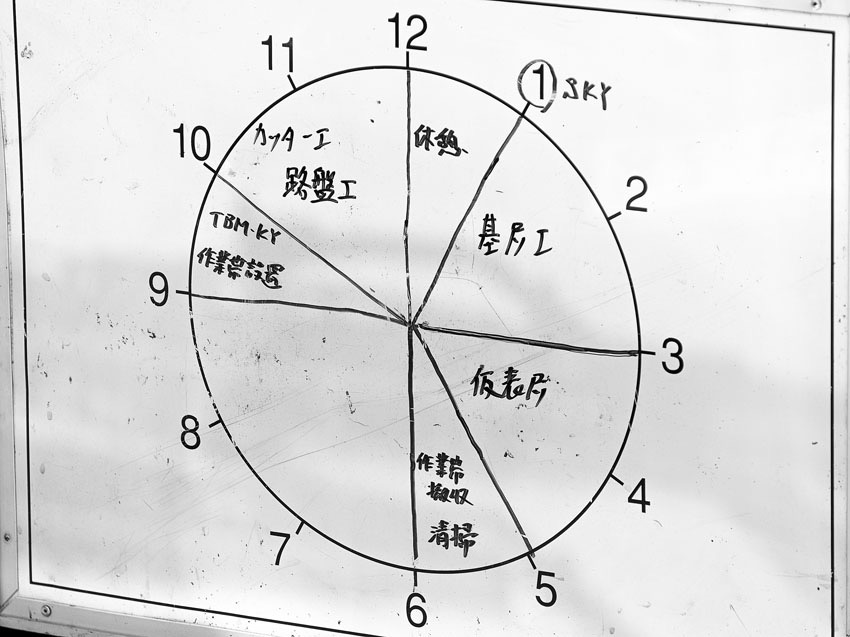 12
11
1 SKY
10
カッター工
休憩
路盤工
2
TBM-KY
基層工
作業帯設置
9
3
仮表層
8
作業帯
撤収
4
清掃
7
5
6